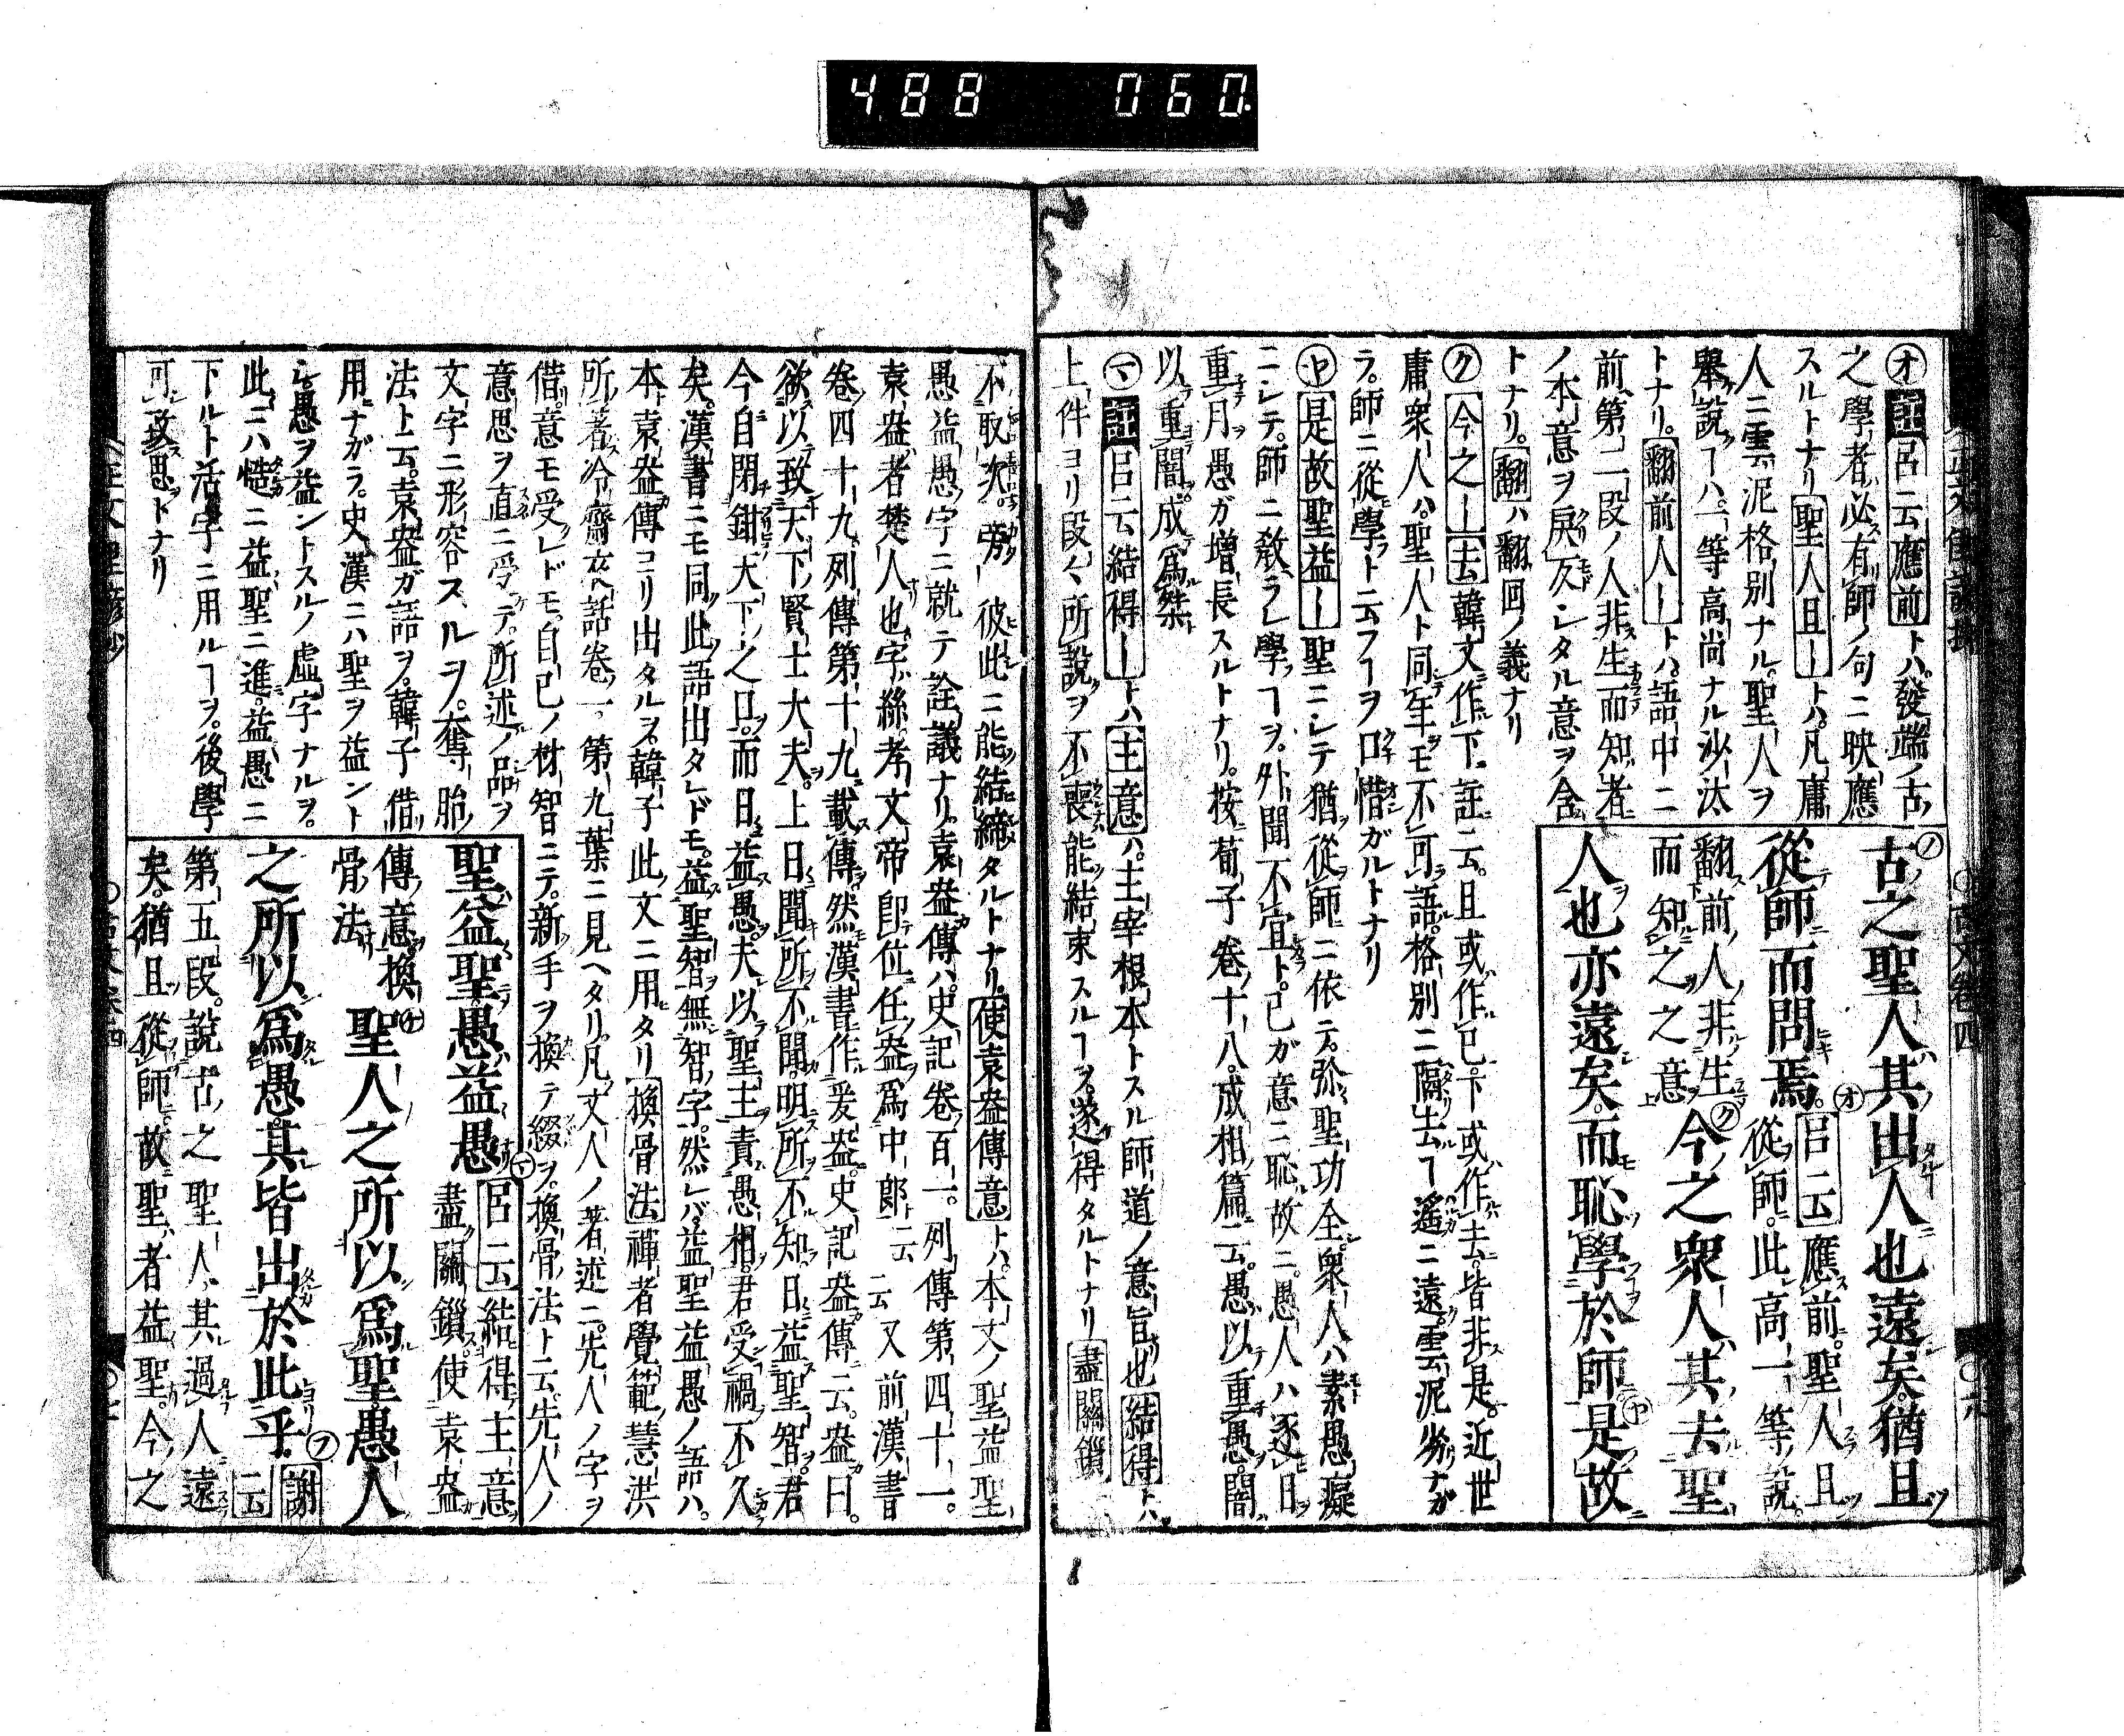 488 060
古之聖人其出人也遠矣猶且
從師而問焉 呂云應前聖人且
從師此高一等說
翻前人非生
而知之之意 今之衆人其去聖
人也亦遠矣而恥學於師是故
オ 註 呂云應前トハ發端ノ古
之學者必有師ノ句ニ映應
スルトナリ 聖人且ートハ凡庸
人ニ雲泥格別ナル聖人ヲ
擧説フハ一等高尚ナル沙汰
トナリ 翻前人ートハ語中ニ
前第二段ノ人非生而知者
ノ本意ヲ戻反シタル意ヲ含
トナリ 翻ハ翻回ノ義ナリ
ク 今之ー去 韓文作下註云且或作已下或作去皆非是近世
庸衆人ハ聖人ト同年モ不可語格別ニ隔去ヿ遙ニ遠雲泥劣ナガ
ラ師ニ從學ト云フヿヲ口惜ガルトナリ
ヤ 是故聖益ー 聖ニシテ猶從師ニ依テ弥聖功全衆人ハ素愚癡
ニシテ師ニ敎ラレ學ヿヲ外聞不宜ト己ガ意ニ恥故ニ愚人ハ逐日
重月愚ガ增長スルトナリ按荀子卷十八成相篇ニ云愚以重愚闇
以重闇成爲桀
マ 註 呂云結得ートハ 主意ハ主宰根本トスル師道ノ意旨也 結得トハ
上件ヨリ段々所説ヲ不喪能結束スルヿヲ遂得タルトナリ 盡關鎖
不取次旁ー彼此ニ能結締タルトナリ 使袁盎傳意トハ本文ノ聖益聖
愚益愚ノ字ニ就テ詮議ナリ袁盎傳ハ史記卷百一列傳第四十一
袁盎者楚人也字絲孝文帝卽位任盎爲中郎云云又前漢書
卷四十九列傳第十九載傳然漢書作爰盎史記盎傳ニ云盎曰
欲以致天下賢士大夫上日聞所不聞明所不知日益聖智君
今自閉鉗天下之口而日益愚夫以聖主責愚相君受禍不久
矣漢書ニモ同此語出タレドモ益聖智無智字然レバ益聖益愚ノ語ハ
本袁盎傳ヨリ出タルヲ韓子此文ニ用タリ 換骨法 禪者覺範慧洪
所著冷齋夜話卷一第九葉ニ見ヘタリ凡文人ノ著述ニ先人ノ字ヲ
借意モ受レドモ自己ノ材智ニテ新手ヲ換テ綴ヲ換骨法ト云先人ノ
意思ヲ直ニ受テ所述ノ品ヲ
文字ニ形容スルヲ奪胎
法ト云袁盎ガ語ヲ韓子借
用ナガラ史漢ニハ聖ヲ益ント
シ愚ヲ益ントスルノ虛字ナルヲ
此ニハ慥ニ益聖ニ進益愚ニ
下ルト活字ニ用ルヿヲ後學
可致思トナリ
聖益聖愚益愚 呂云結得主意
盡關鎖使袁盎
傳意換
骨法 聖人之所以爲聖愚人
之所以爲愚其皆出於此乎 謝云
第五段說古之聖人其過人遠
矣猶且從師故聖者益聖今之